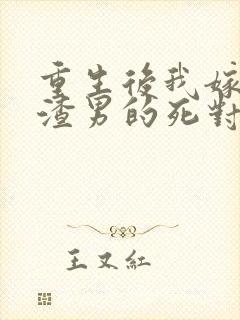 重生後我嫁
渣男的死對
王又紅